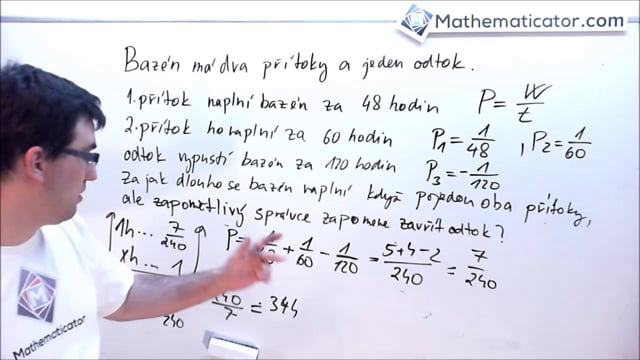 Mathematicator.com
Bazén má dva přítoky a jeden odtok.
1. přítok naplní bazén za 48 hodin P = W/t
2. přítok ho naplní za 60 hodin P₁ = 1/48 , P₂ = 1/60
odtok vypustí bazén za 120 hodin P₃ = -1/120
Za jak dlouho se bazén naplní když pojedou oba přítoky,
ale zapomětlivý správce zapomene zavřít odtok?
1h... 7/240 P= + 1/60 - 1/120 = 5+4-2/240 = 7/240
xh... 1
240 /7 = 344
Mathematicator